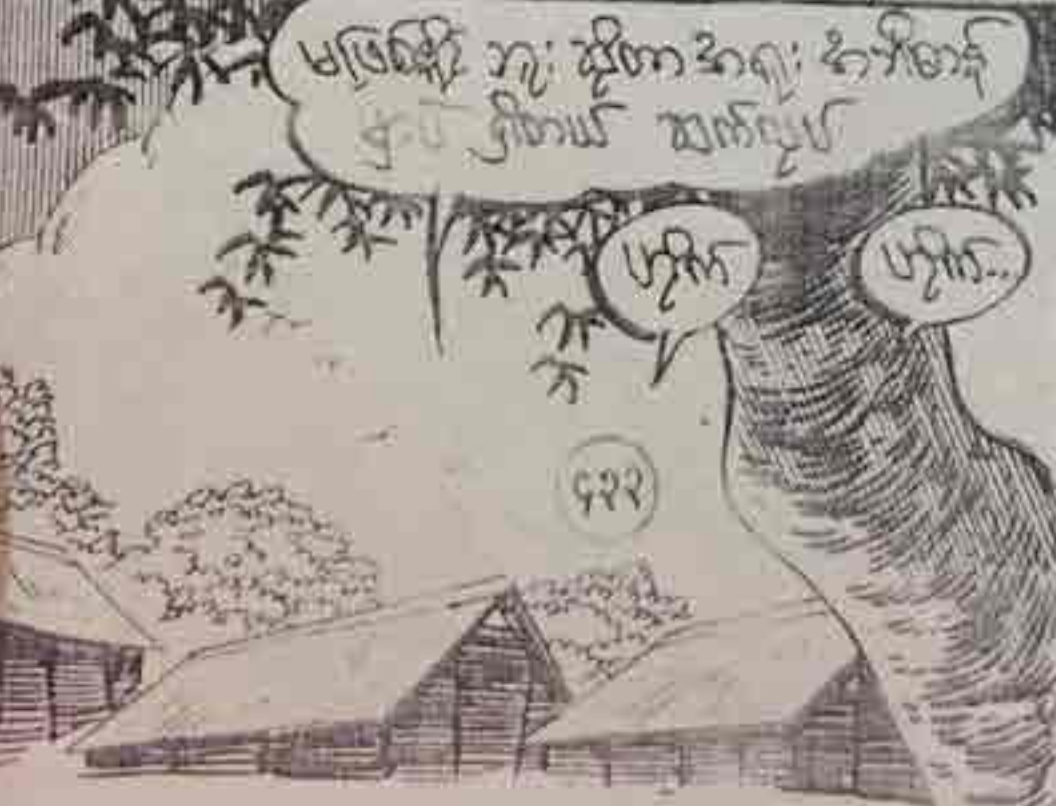 မဖြစ်နိုင် ဘူး ဆိုတာ အရူး အဘိဓာန်
မှာပဲ ရှိတယ် ဆက်လုပ်
ဟုတ်
ဟုတ်..
၄၃၃